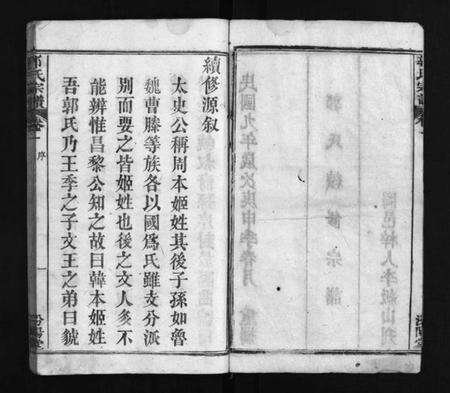 民國九年歲次庚申季春月
郭氏續修宗譜
續修源叙
太史公稱周本姬姓其後子孫如魯
魏曹滕等族各以國爲氏雖支分派
别而要之皆姬姓也後之文人多不
能辨惟昌黎公知之故曰韓本姬姓
吾郭氏乃王季之子文王之弟曰虢
郭氏宗譜
卷一
序
一
汾陽堂